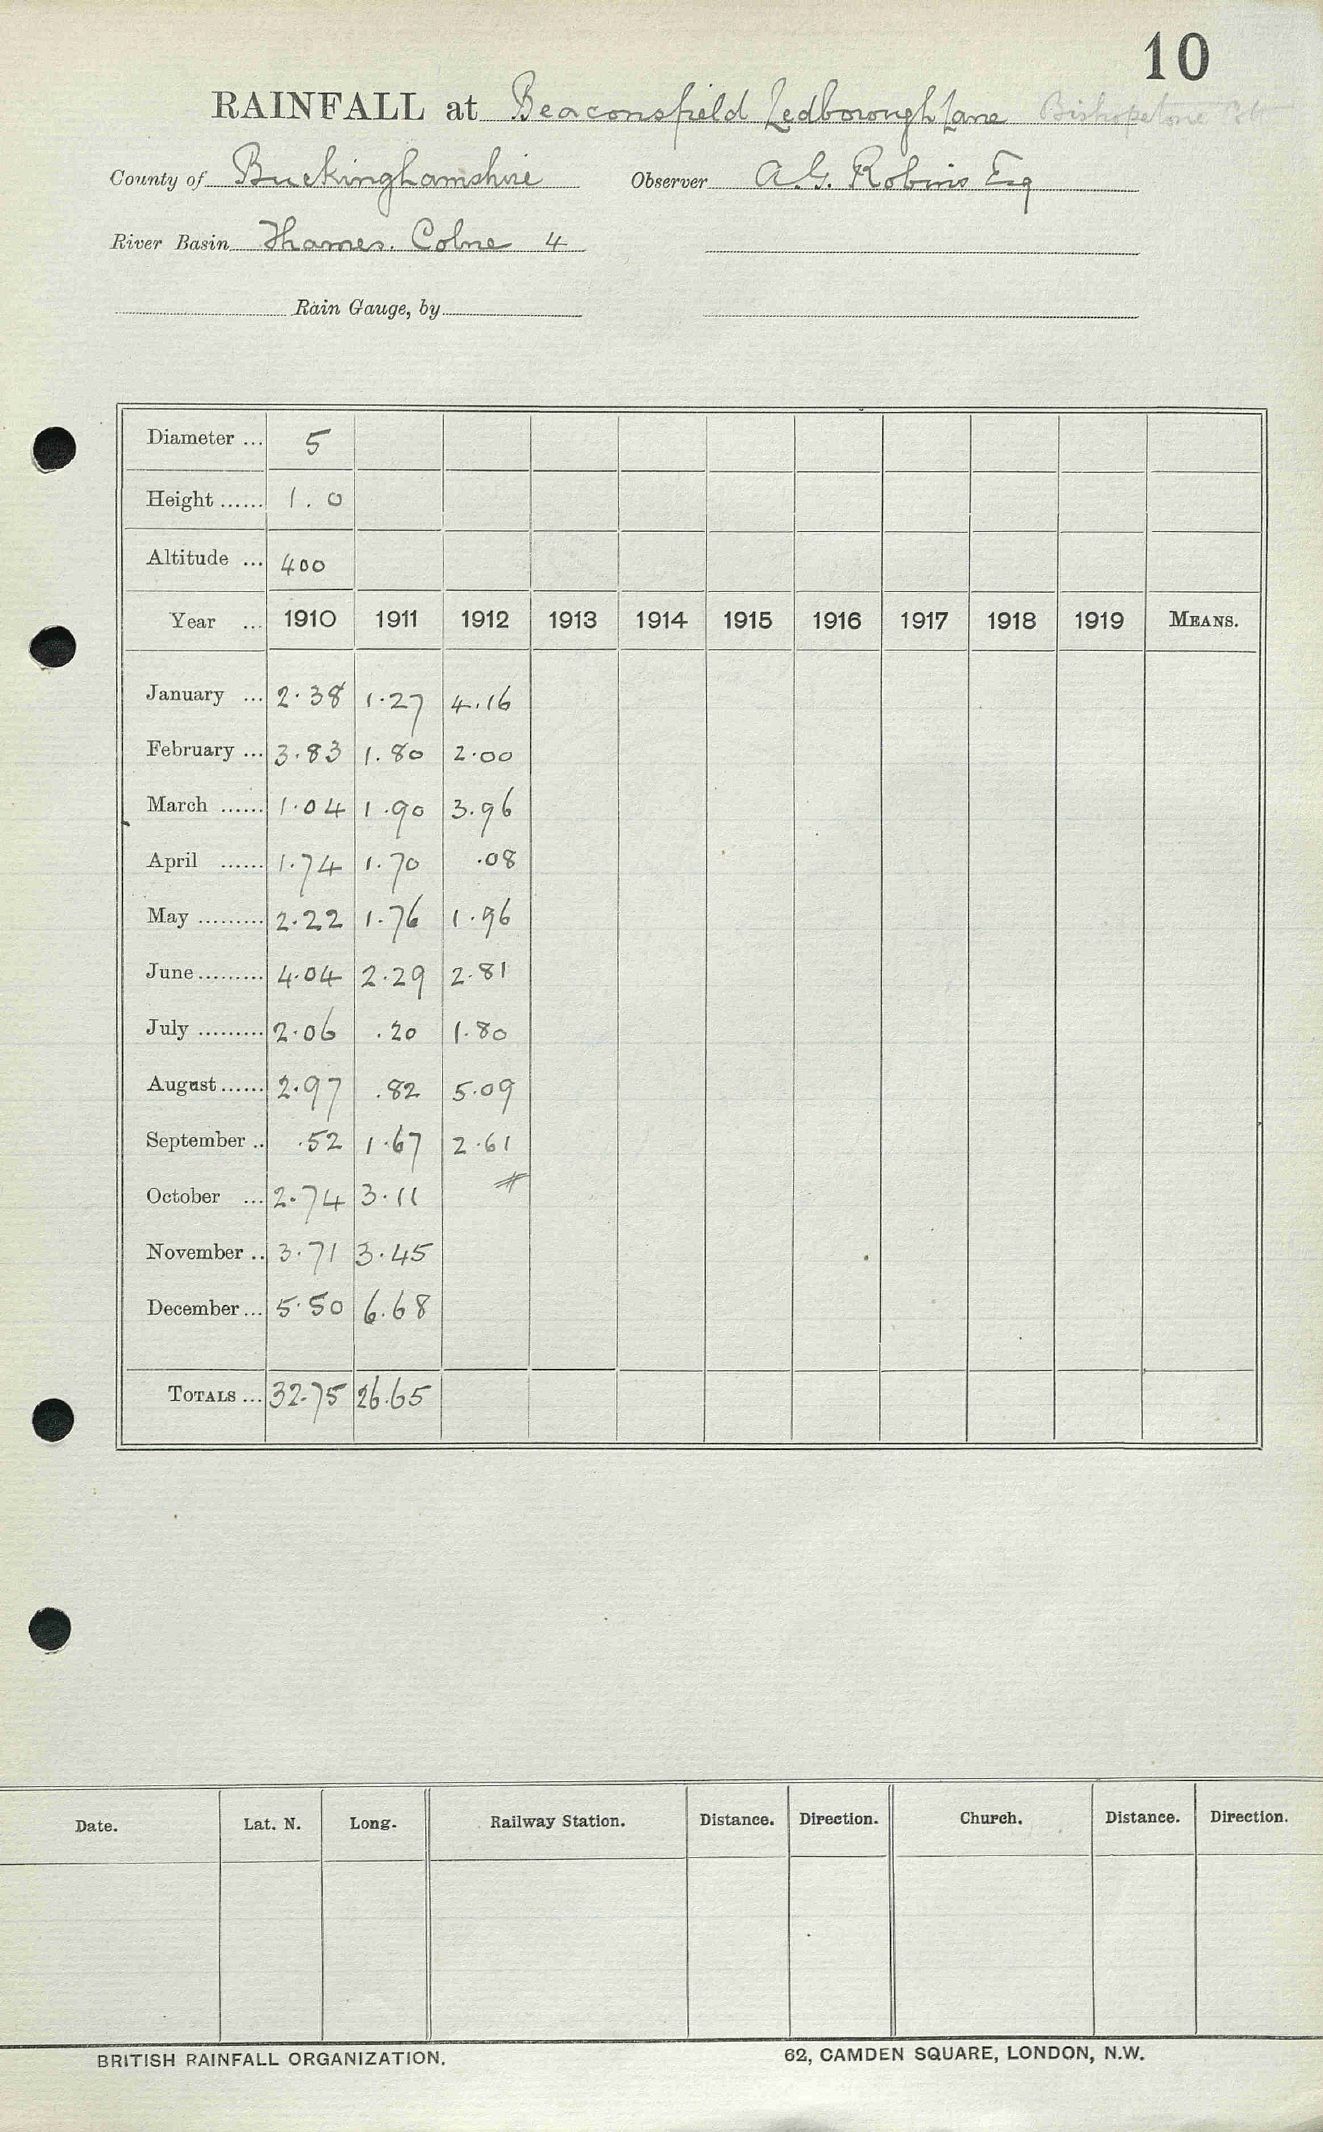 10
RAINFALL at Beaconsfield Ledborough Lane Bishopstone
County of Buckinghamshire Observer A.G. Robins Esq
River Basin Thames. Colne 4
Rain Gauge, by
Diameter ... 5
Height ...... 1.0
Altitude ... 400
Year ... 1910 1911 1912 1913 1914 1915 1916 1917 1918 1919 MEANS.
January ... 2.38 1.27 4.16
February ... 3.83 1.80 2.00
March ...... 1.04 1.90 3.96
April ...... 1.74 1.70 .08
May ......... 2.22 1.76 1.96
June ......... 4.04 2.29 2.81
July ......... 2.06 .20 1.80
August ...... 2.97 .82 5.09
September .. .52 1.67 2.61
October ... 2.74 3.11 #
November .. 3.71 3.45
December ... 5.50 6.68
TOTALS ... 32.75 26.65
Date. Lat. N. Long. Railway Station. Distance. Direction. Church. Distance. Direction.
BRITISH RAINFALL ORGANIZATION. 62, CAMDEN SQUARE, LONDON, N.W.